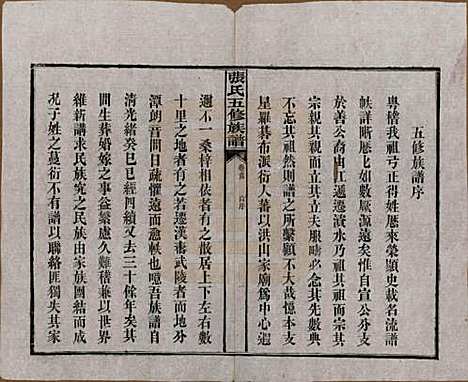 五修族譜序
粵稽我祖弓正得姓厯來榮顯史載名流譜
帙詳晰厯比如數厥源遠矣惟自宣公分支
於善公裔由江遷資水乃祖其祖而宗其
宗親其親者也夫服疇必念其先數典
不忘其祖然則譜之所繫顧不大哉慨本支
星羅碁布派衍人蕃以洪山家廟為中心遐
邇不一桑梓相依者有之散居上下左右數
十里之地者有之若遷漢壽武陵者而地分
潭朗音問日疏懼遠而愈軼也噫吾族譜自
清光緒癸巳已經四續又去三十餘年矣其
間生葬婚嫁之事益繁慮久難稽兼以世界
維新講求民族宄之民族由家族團結而成
況子姓之蔓衍不有譜以聯絡匪獨失其家
張氏五修族譜
卷首
自序